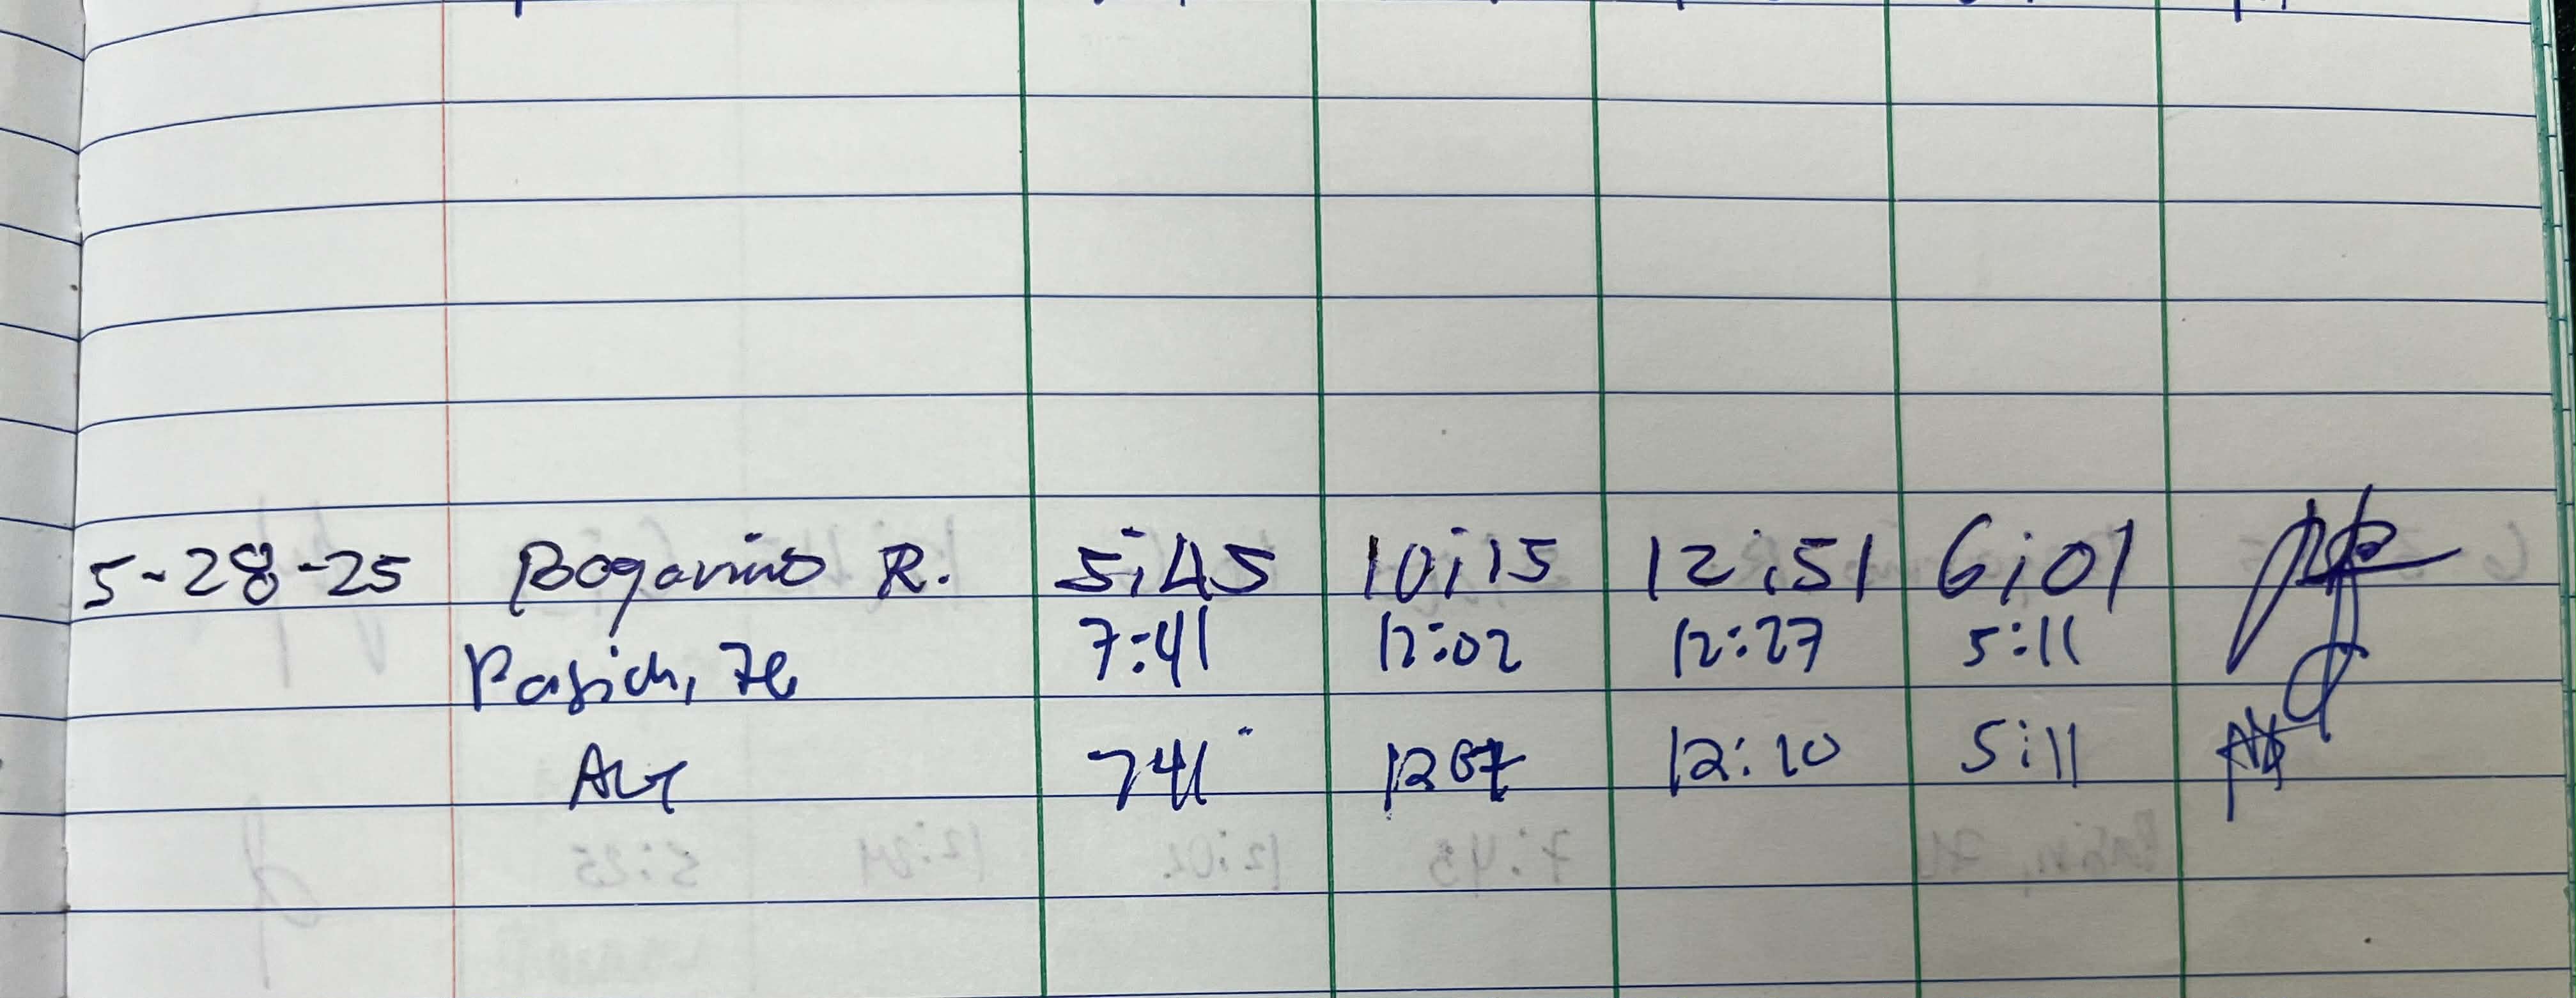 5-28-25 Bogarino R. 5:45 10:15 12:51 6:01
7:41 12:02 12:27 5:11
741 12:10 5:11